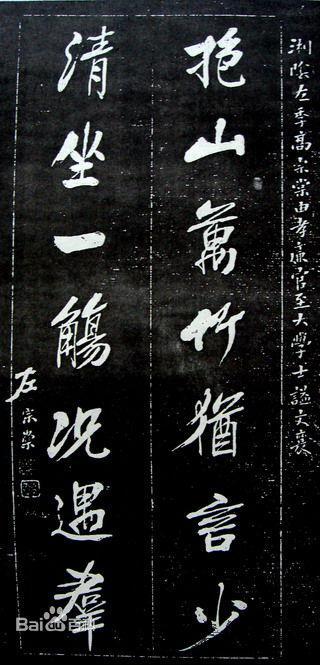 湘陰左季高宗棠由孝廉官至大學士諡文襄
抱山萬竹猶言少
清坐一觴况遇羣
左宗棠
Bai百科